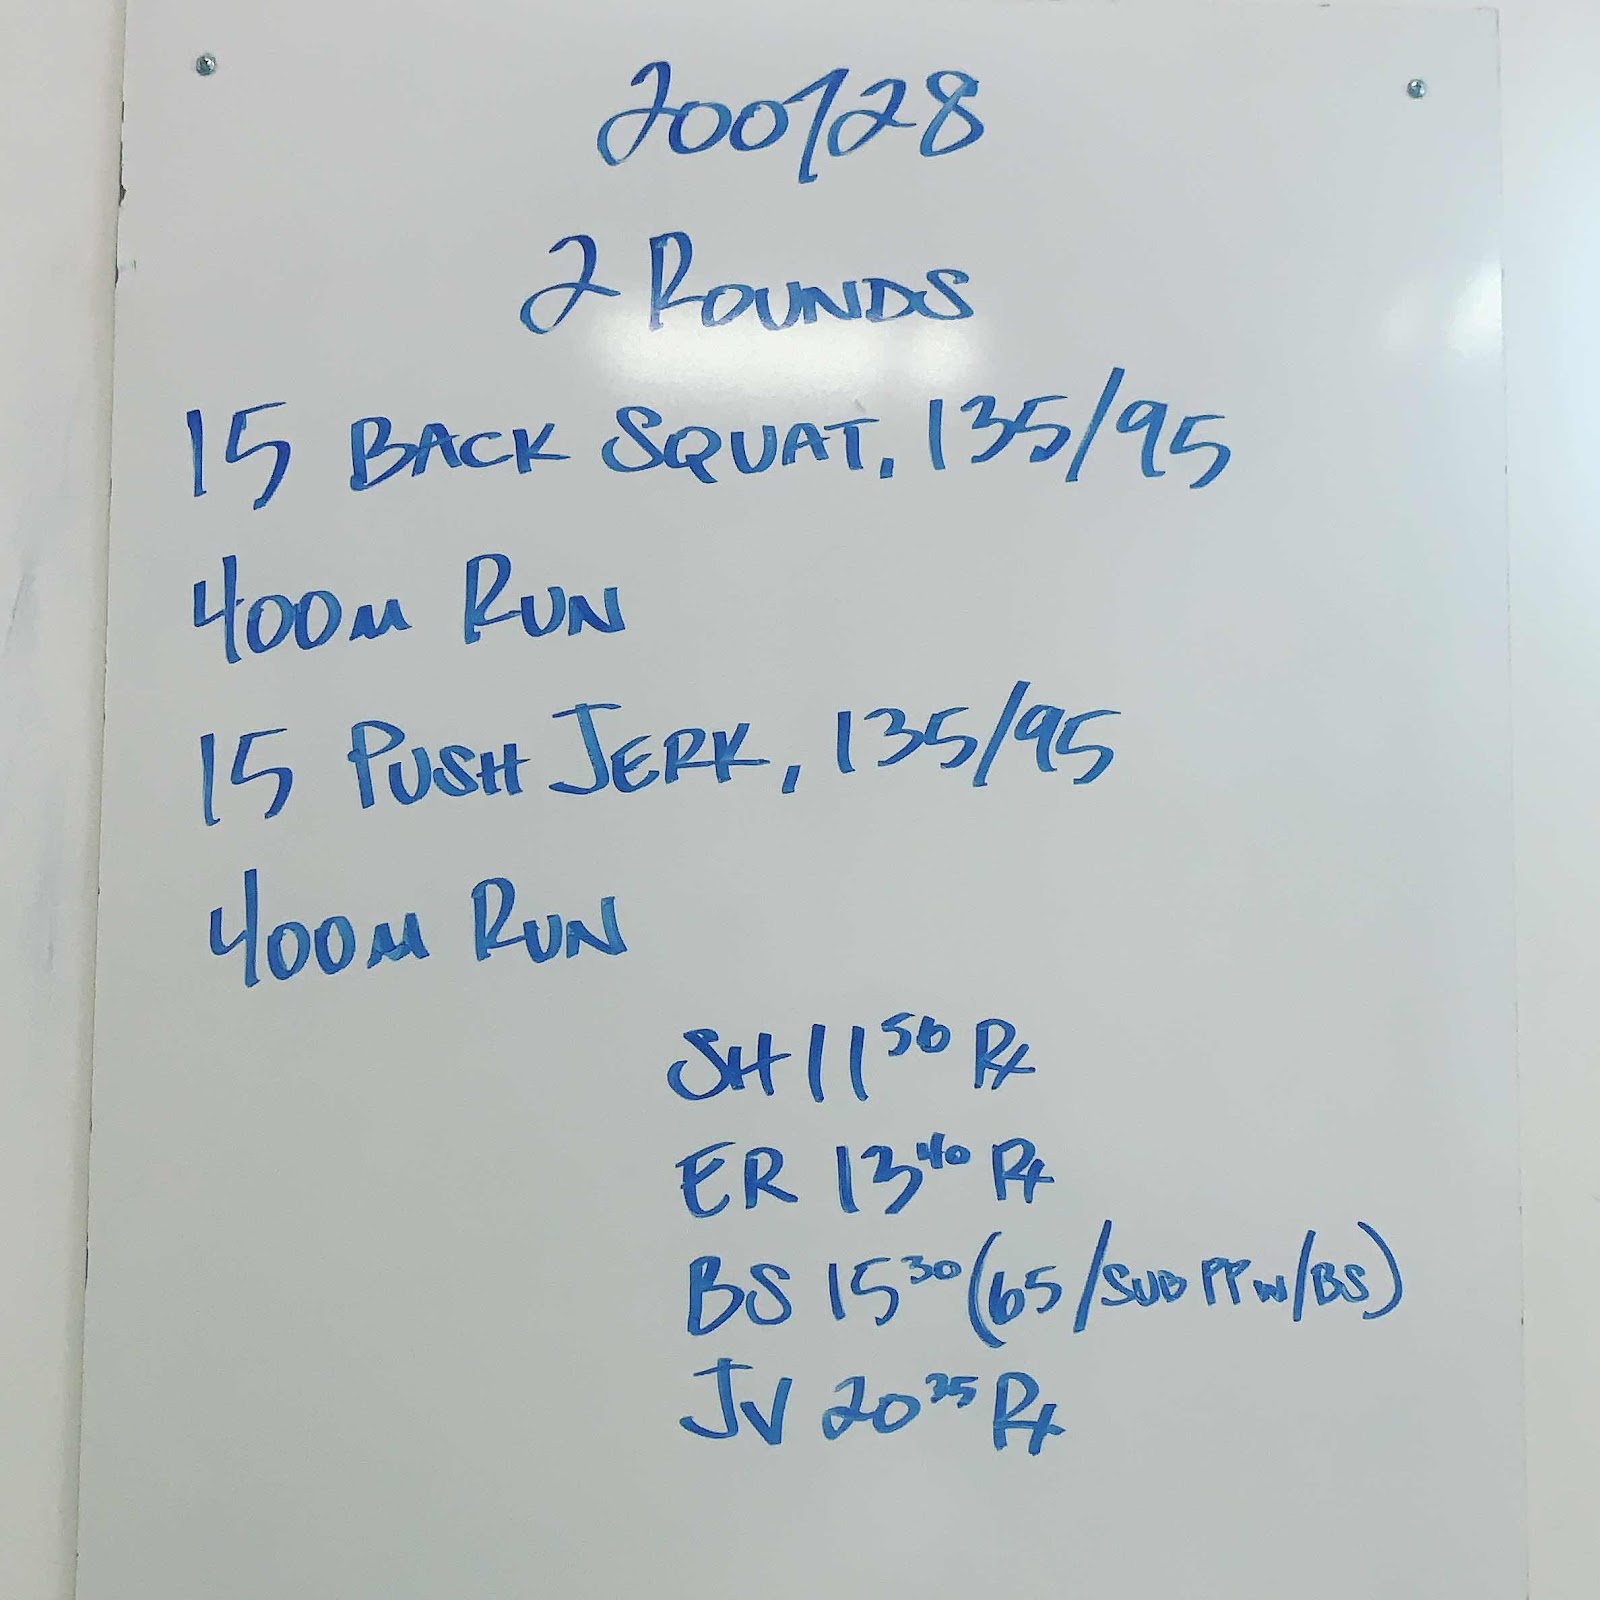 200728
2 ROUNDS
15 BACK SQUAT, 135/95
400M RUN
15 PUSH JERK, 135/95
400M RUN
SH 11 50 Rx
ER 13 40 Rx
BS 15 30 (65/SUB PP W/BS)
JV 20 35 Rx